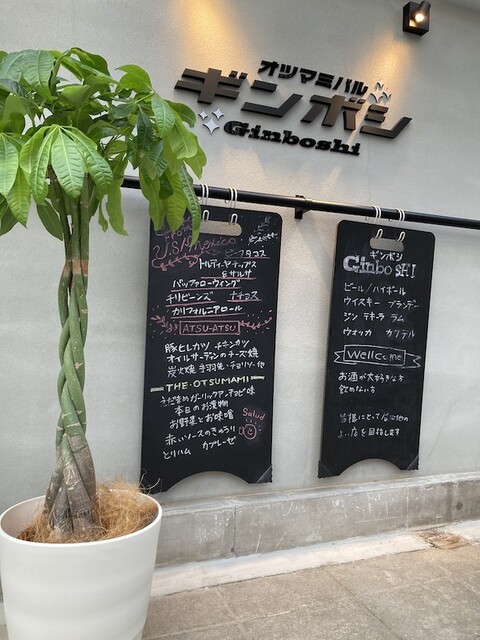 オツマミバル
ギンボシ
Ginboshi
U.S/Mexico
タコス
トルティーヤチップス
&サルサ
バッファローウィング
チリビーンズ ナチョス
カリフォルニアロール
ATSU-ATSU
豚ヒレカツ チキンカツ
オイルサーディンのチーズ焼
炭火焼 手羽先・チョリソー他
THE・OTSUMAMI
えだまめガーリックアンチョビ味
本日のお漬物
お野菜とお味噌
赤いソースのきゅうり
とりハム カプレーゼ
Salud
ギンボシ
GinboSHI
ビール/ハイボール
ウイスキー ブランデー
ジン テキーラ ラム
ウォッカ カクテル
Wellcome
お酒が大好きな方
飲めない方
皆様にとって居心地の
よい店を目指します